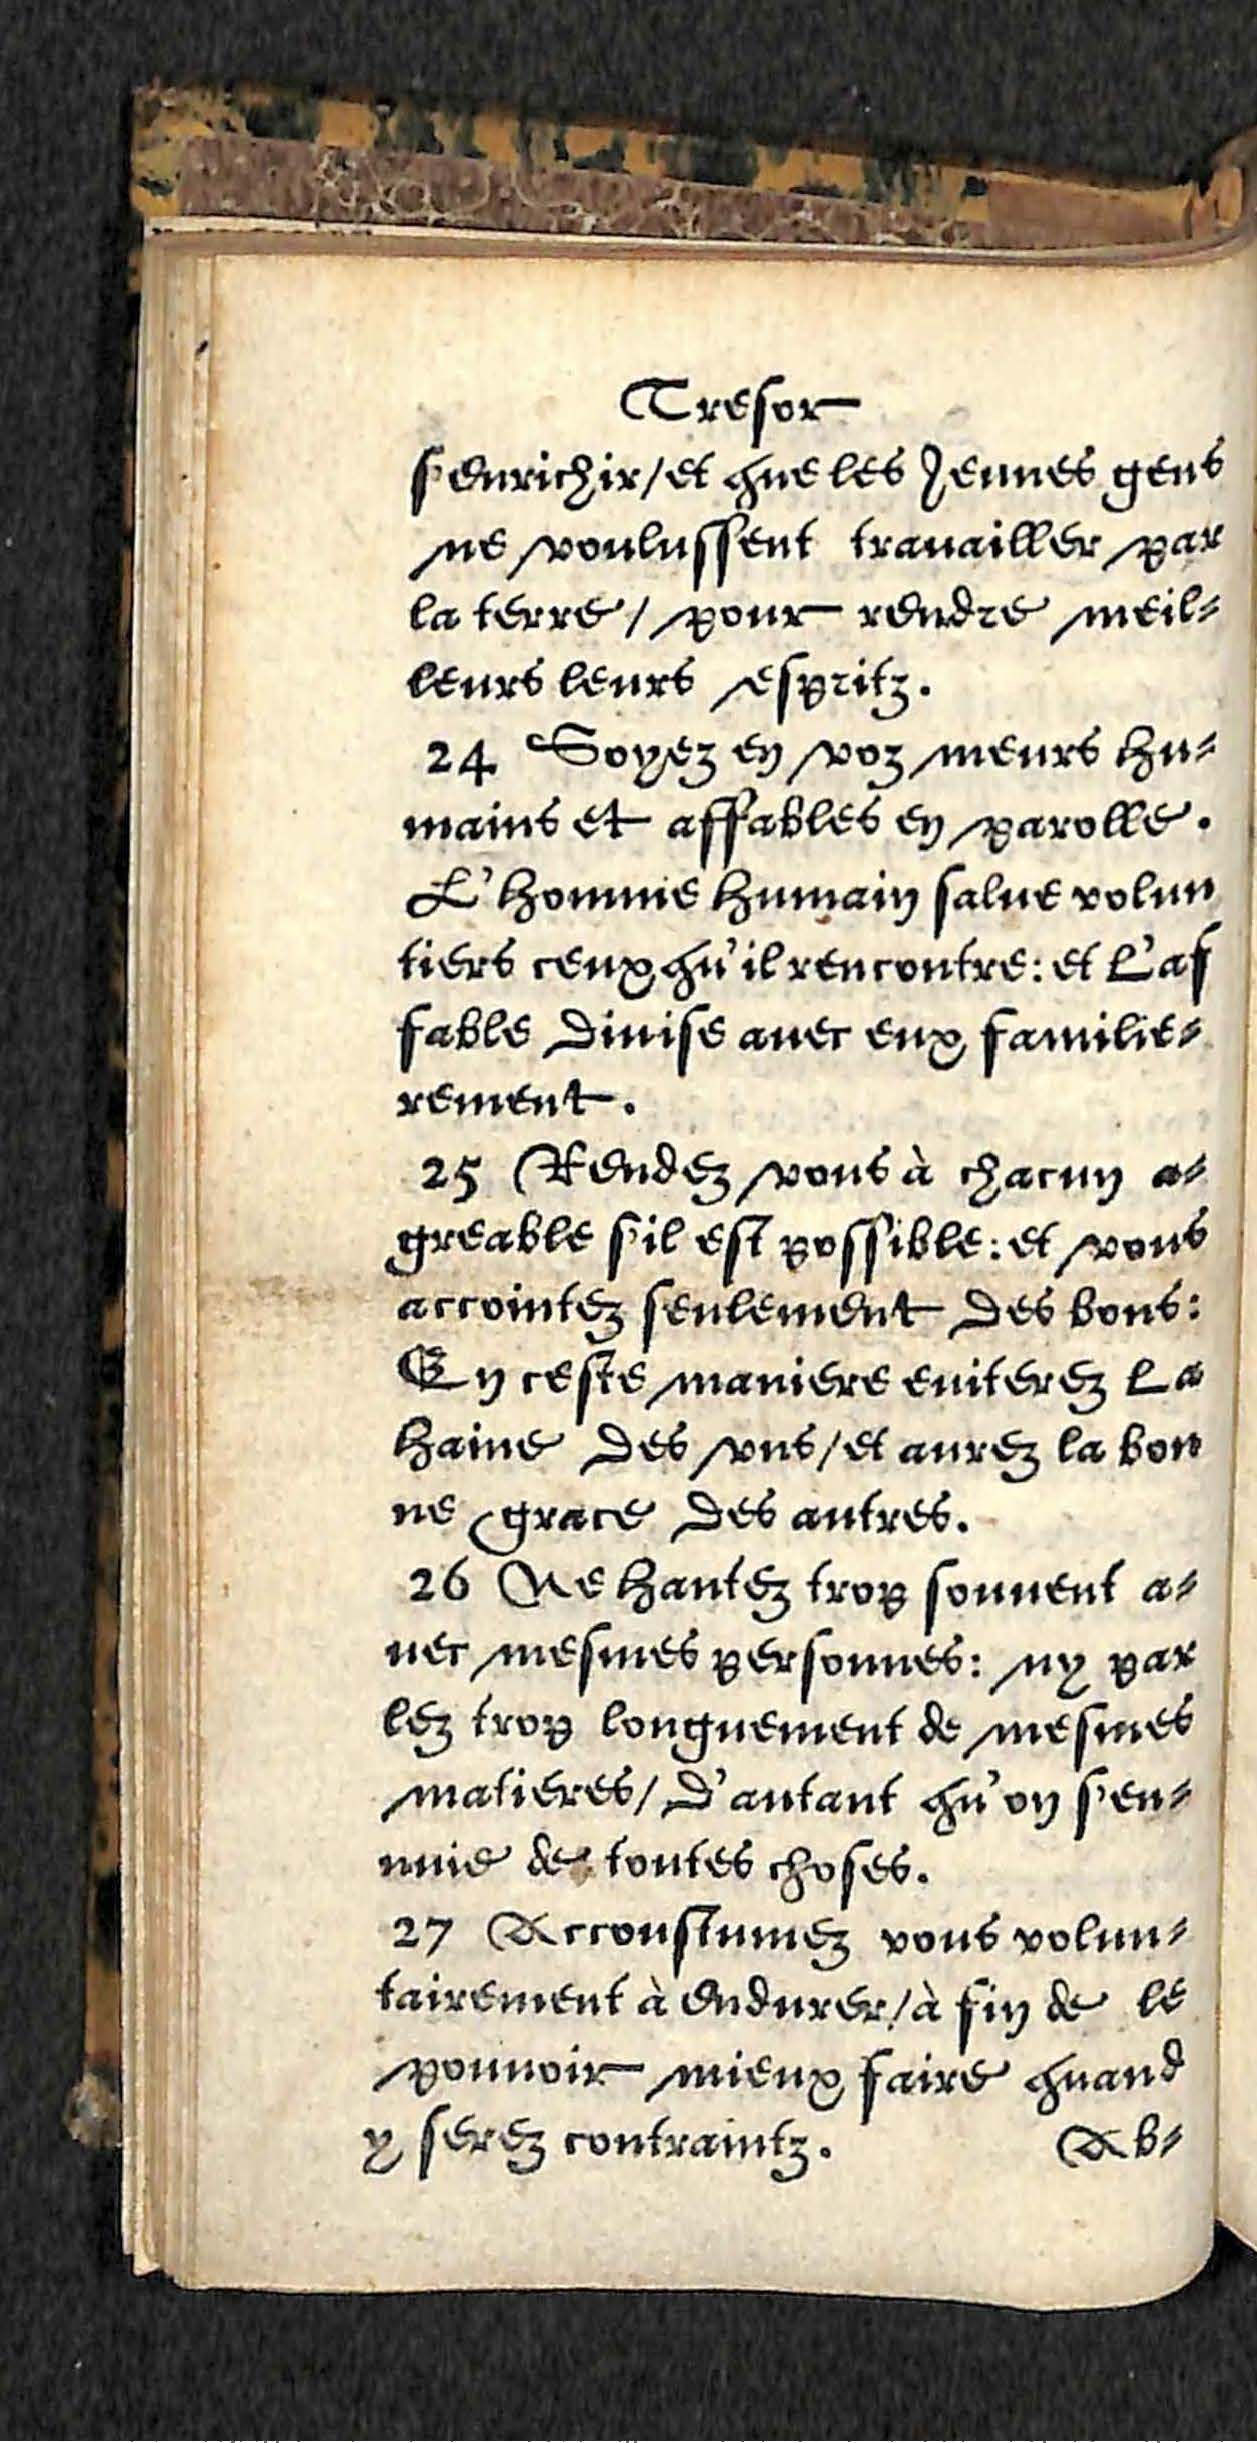 Tresor
s'enrichir/et que les Jeunes gens
ne voulussent trauailler par
la terre/ pour rendre meil-
leurs leurs espritz.
24 Soyez en voz meurs hu-
mains et affables en parolle.
L'homme humain salue volun
tiers ceux qu'il rencontre: et l'af
fable diuise auec eux familie-
rement.
25 Rendez vous à chacun a-
greable s'il est possible: et vous
accointez seulement des bons:
En ceste maniere euiterez la
haine des vns/et aurez la bon
ne grace des autres.
26 Ne hantez trop souuent a-
uec mesmes personnes: ny par
lez trop longuement de mesmes
matieres/ d'autant qu'on s'en-
nuie de toutes choses.
27 Accoustumez vous volun-
tairement à endurer/à fin de le
pouuoir mieux faire quand
y serez contraintz. Ab-